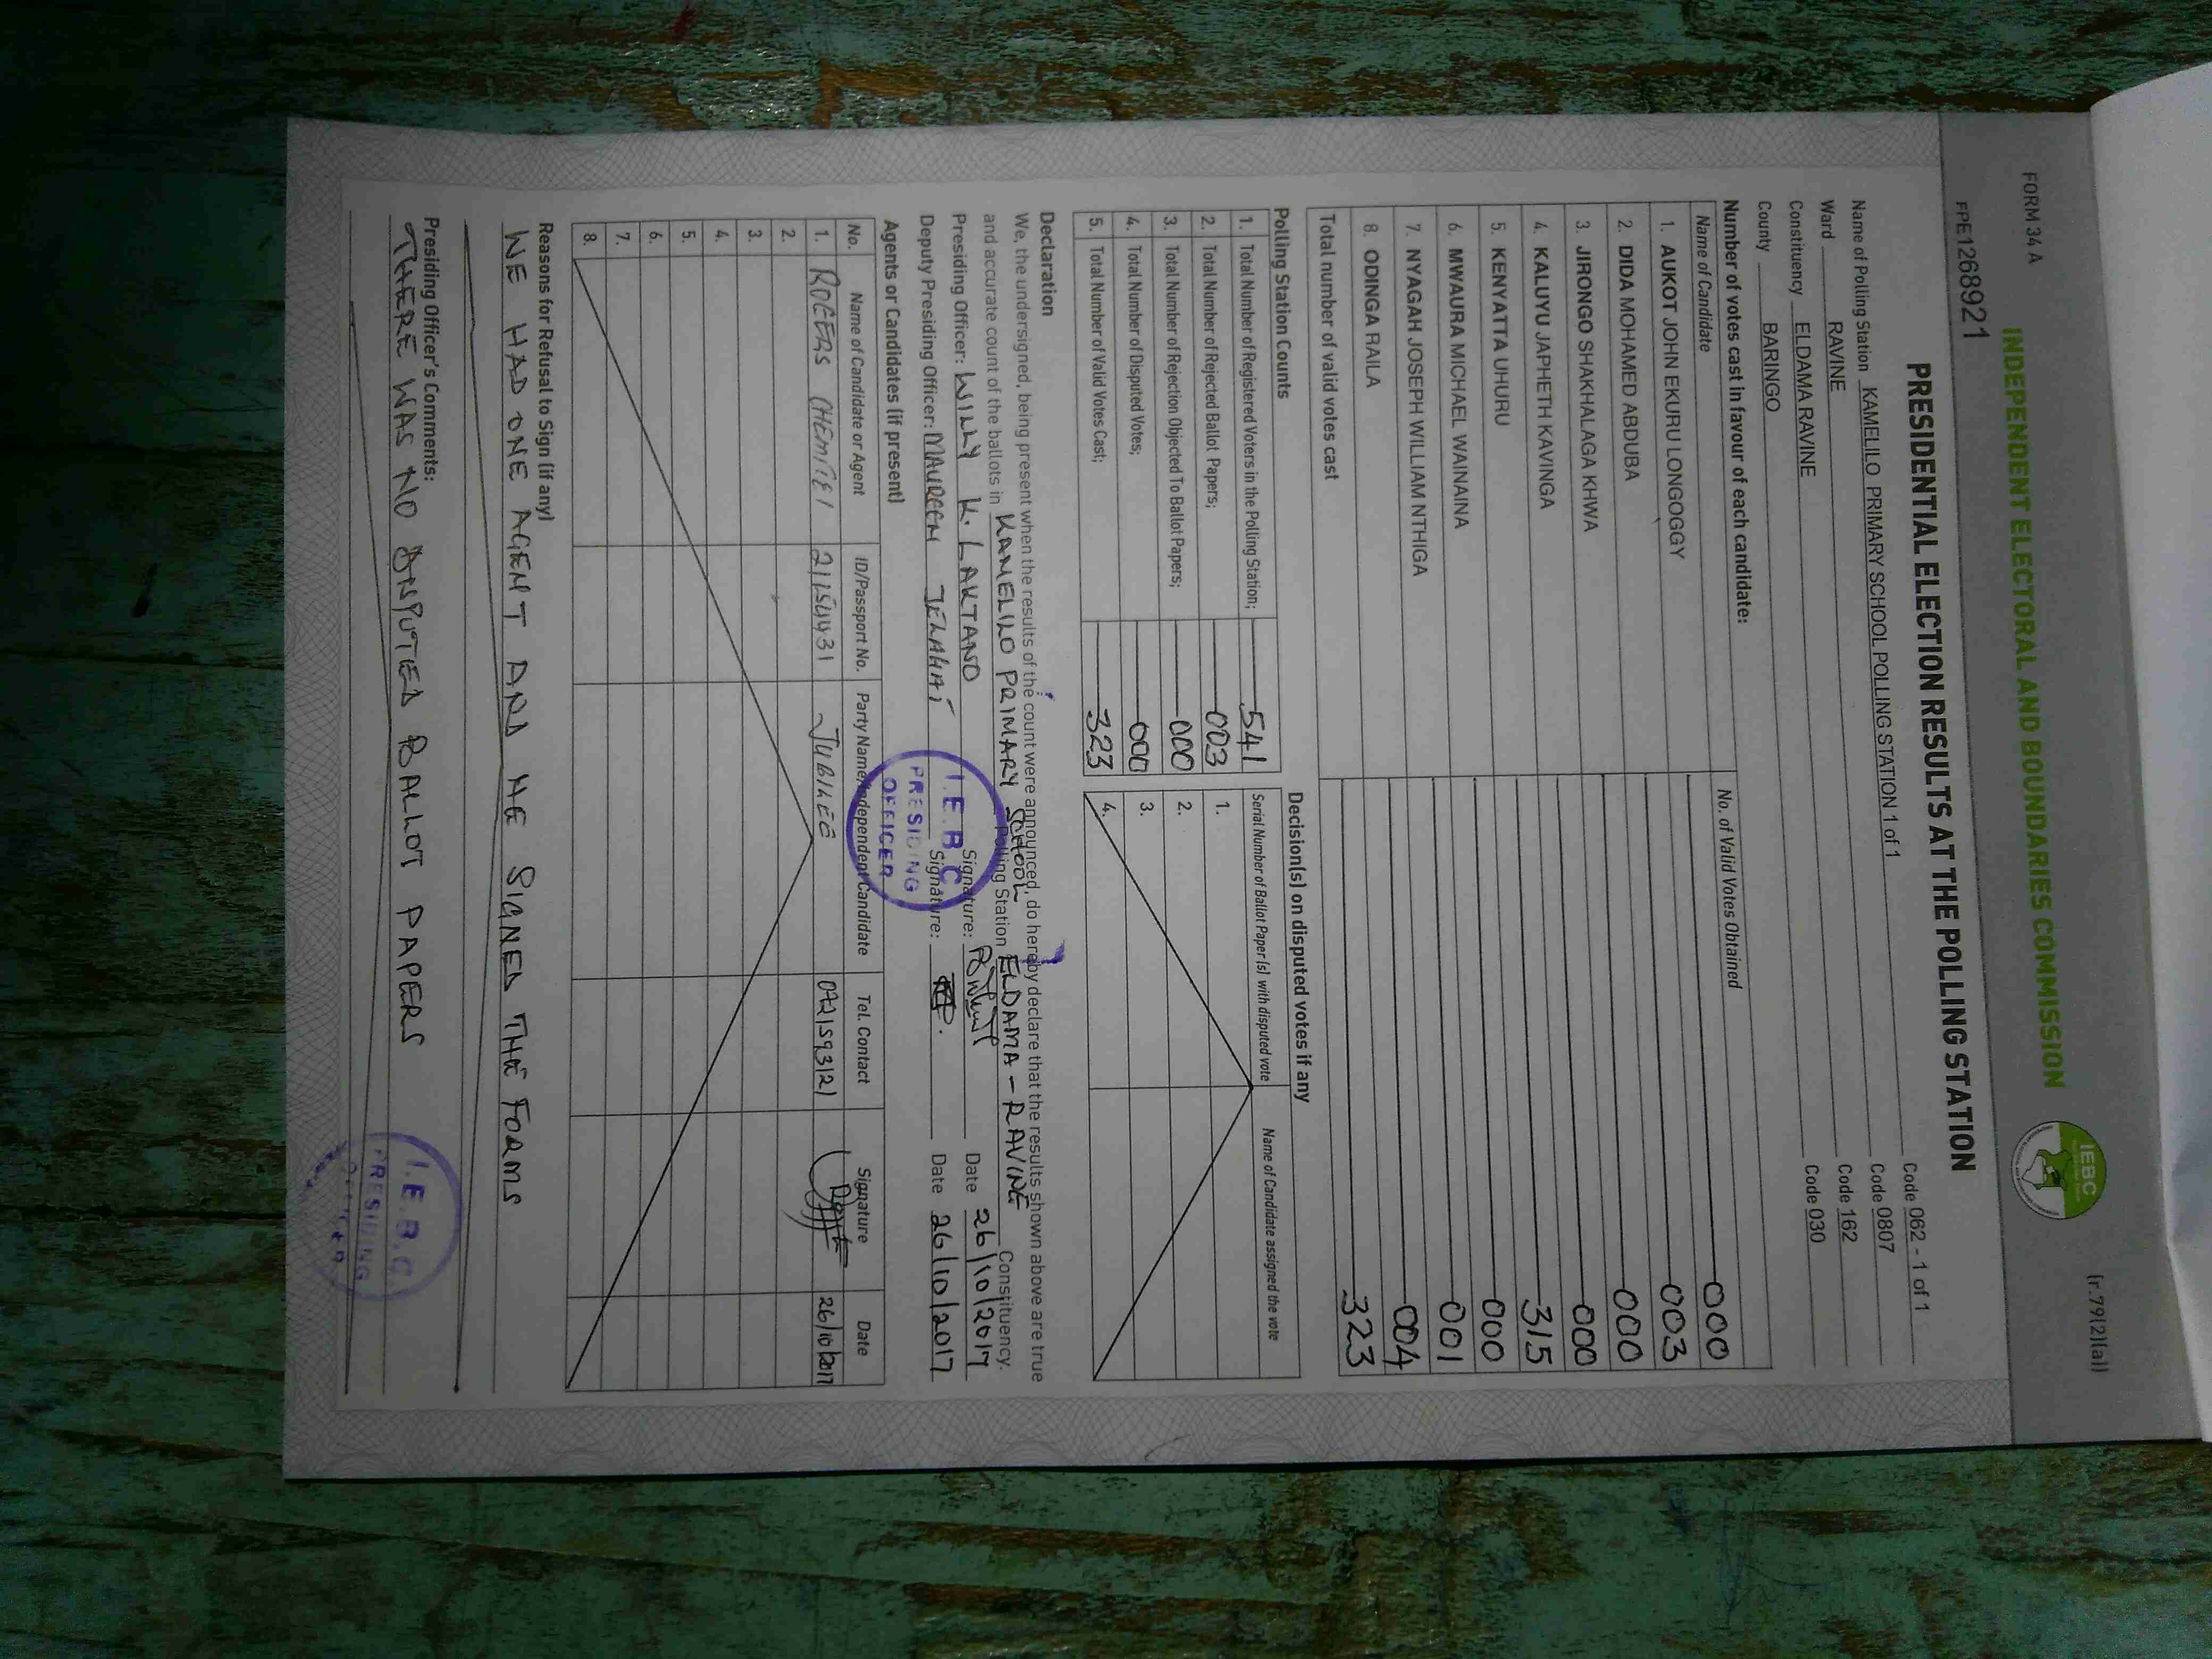 FORM 34 A
(r.79(2)(a))
INDEPENDENT ELECTORAL AND BOUNDARIES COMMISSION
IEBC
FPE1268921
PRESIDENTIAL ELECTION RESULTS AT THE POLLING STATION
Name of Polling Station KAMELILO PRIMARY SCHOOL POLLING STATION 1 of 1 Code 062 - 1 of 1
Ward RAVINE Code 0807
Constituency ELDAMA RAVINE Code 162
County BARINGO Code 030
Number of votes cast in favour of each candidate:
Name of Candidate No. of Valid Votes Obtained
1. AUKOT JOHN EKURU LONGOGGY 000
2. DIDA MOHAMED ABDUBA 003
3. JIRONGO SHAKHALAGA KHWA 000
4. KALUYU JAPHETH KAVINGA 000
5. KENYATTA UHURU 315
6. MWAURA MICHAEL WAINAINA 000
7. NYAGAH JOSEPH WILLIAM NTHIGA 001
8. ODINGA RAILA 004
Total number of valid votes cast 323
Polling Station Counts
1. Total Number of Registered Voters in the Polling Station; 541
2. Total Number of Rejected Ballot Papers; 003
3. Total Number of Rejection Objected To Ballot Papers; 000
4. Total Number of Disputed Votes; 000
5. Total Number of Valid Votes Cast; 323
Decision(s) on disputed votes if any
Serial Number of Ballot Paper(s) with disputed vote Name of Candidate assigned the vote
1.
2.
3.
4.
Declaration
We, the undersigned, being present when the results of the count were announced, do hereby declare that the results shown above are true
and accurate count of the ballots in KAMELILO PRIMARY SCHOOL Polling Station ELDAMA - RAVINE Constituency.
Presiding Officer: WILLY K. LAKTANO Signature: Date 26/10/2017
Deputy Presiding Officer: MAUREEN Signature: Date 26/10/2017
I.E.B.C
PRESIDING
OFFICER
Agents or Candidates (if present)
No. Name of Candidate or Agent ID/Passport No. Party Name/Independent Candidate Tel. Contact Signature Date
1. ROGERS 21154431 JUBILEE 0721593121 26/10/2017
2.
3.
4.
5.
6.
7.
8.
Reasons for Refusal to Sign (if any)
WE HAD ONE AGENT AND HE SIGNED THE FORMS
Presiding Officer's Comments:
THERE WAS NO DISPUTED BALLOT PAPERS
I.E.B.C
PRESIDING
OFFICER